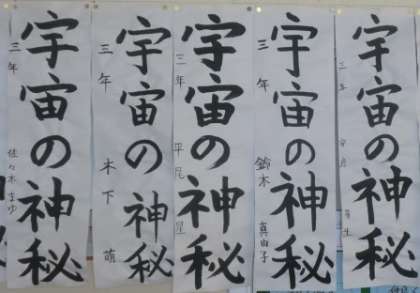 宇宙の神秘
三年 佐々木まゆ
宇宙の神秘
三年 木下 萌
宇宙の神秘
三年 平尾
宇宙の神秘
三年 鈴木 真由子
宇宙の神秘
三年